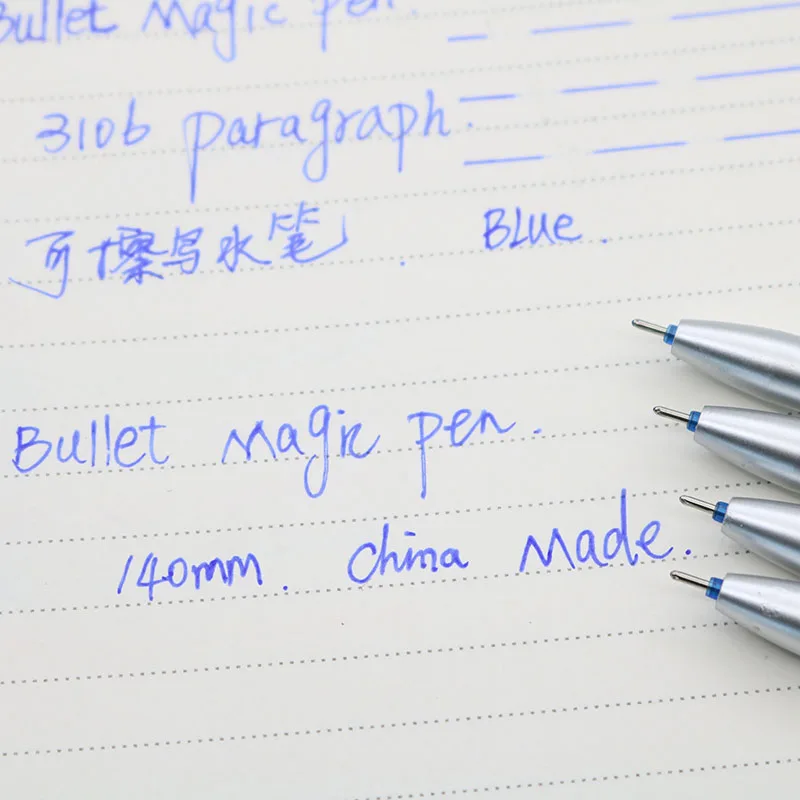 Bullet Magic pen.
3106 paragraph.
可擦写水笔. Blue.
Bullet Magic pen.
140mm. China Made.